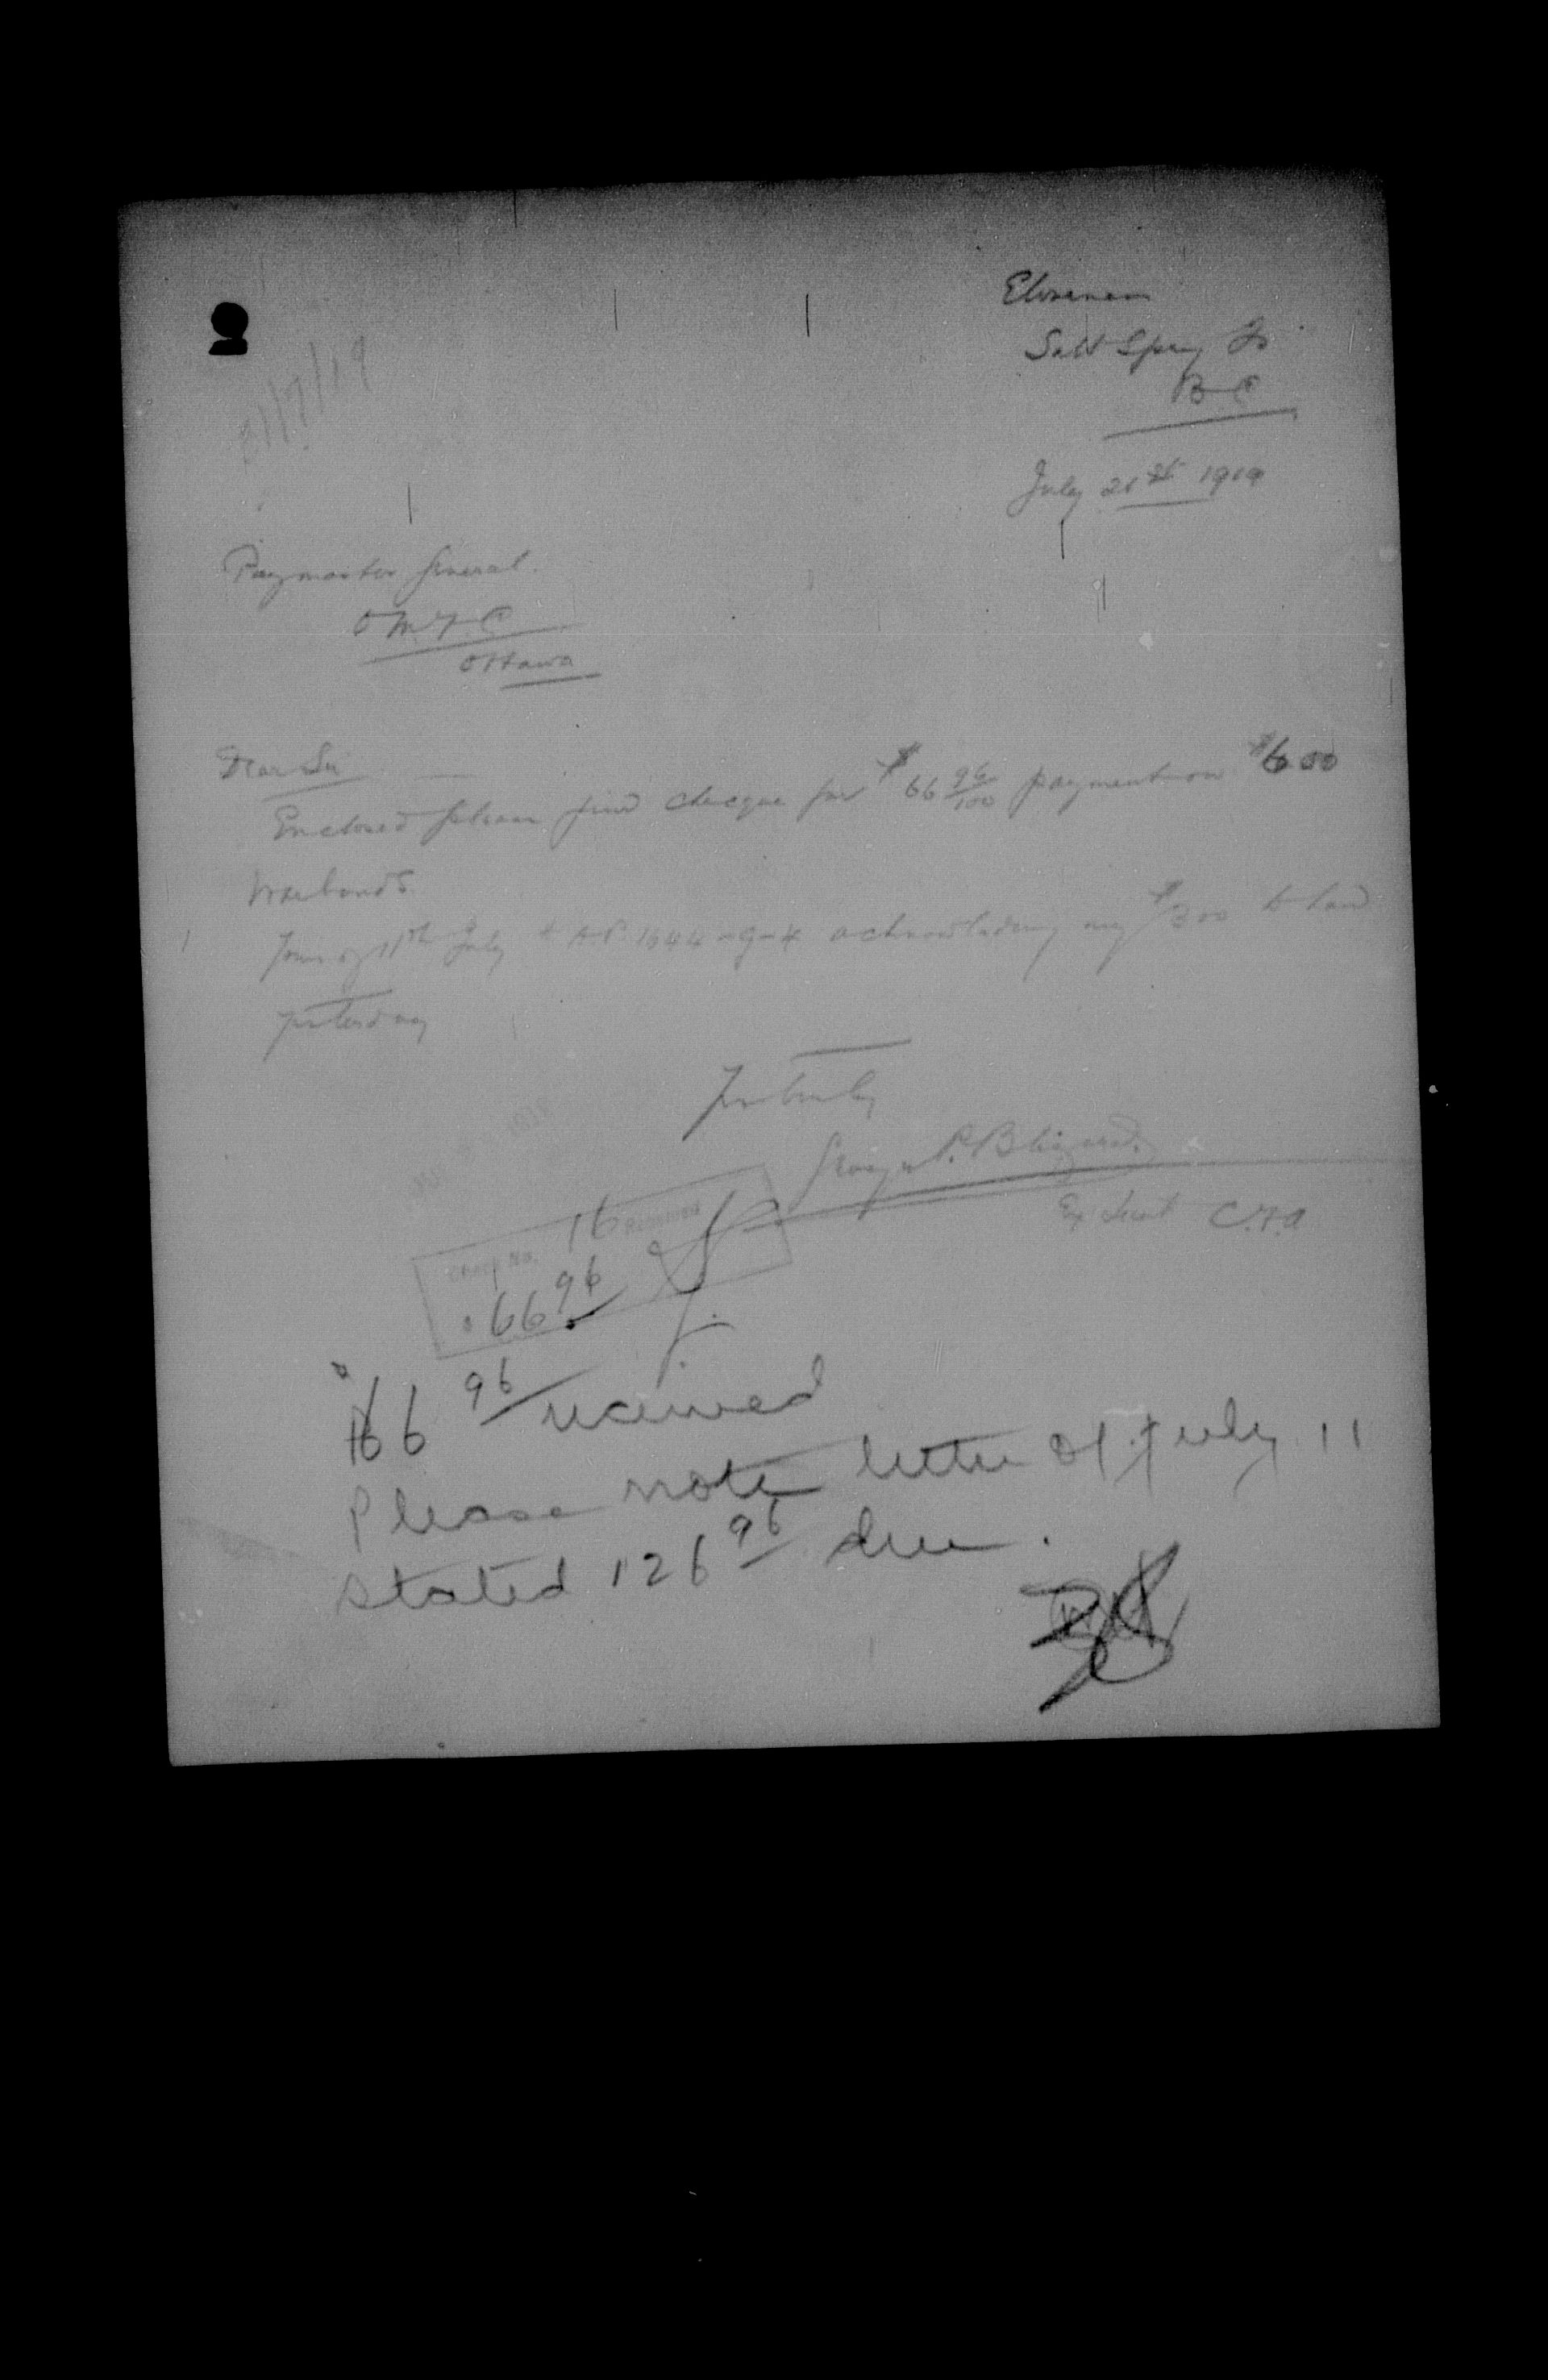 Salt Spring Is
B C
July 21st 1919
21/7/19
Paymaster General.
O M F C
Ottawa
Dear Sir
Enclosed please find cheque for $66 96/100 payment on $600
War bonds.
Yours of 11th July + A.P. 1644-9-4 acknowledging my $300 to hand
yesterday
Yours truly
George P. Blizard.
Ex Lieut C.F.A
16 Received
Cheque No.
66 96
$66 96 received
Please note letter of July 11
stated 126 96 due.